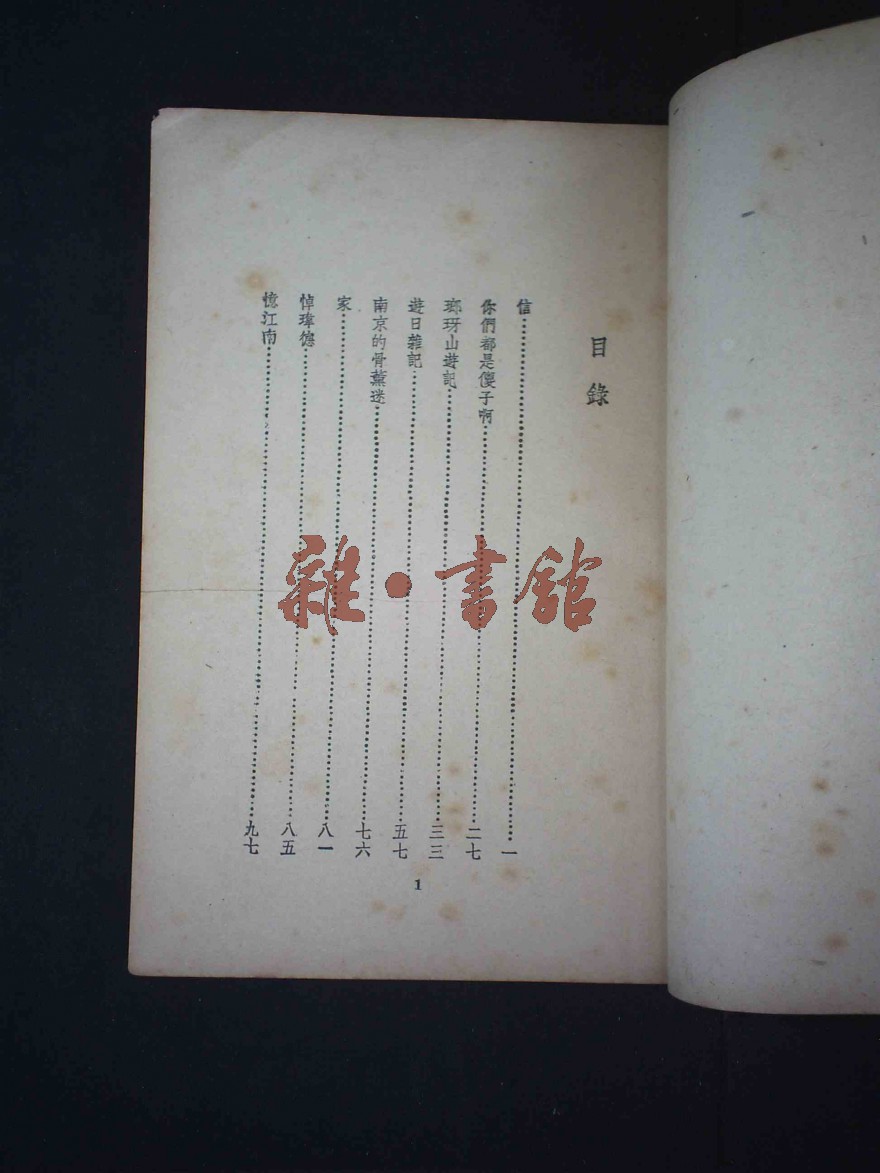 目錄
信……一
你們都是傻子啊……二七
瑯玡山遊記……三三
遊日雜記……五七
南京的骨董迷……七六
家……八一
悼瑋德……八五
憶江南……九七
1
雜·書館